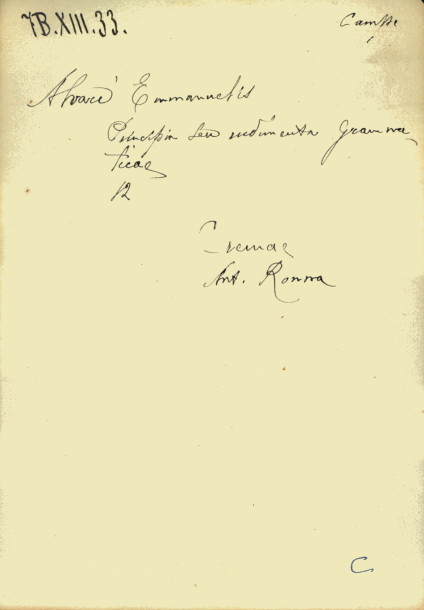 7B.XIII.33.
Alvari Emmanuelis
Principia seu rudimenta Gramma
ticae
12
Cremae
Ant. Ronna
C